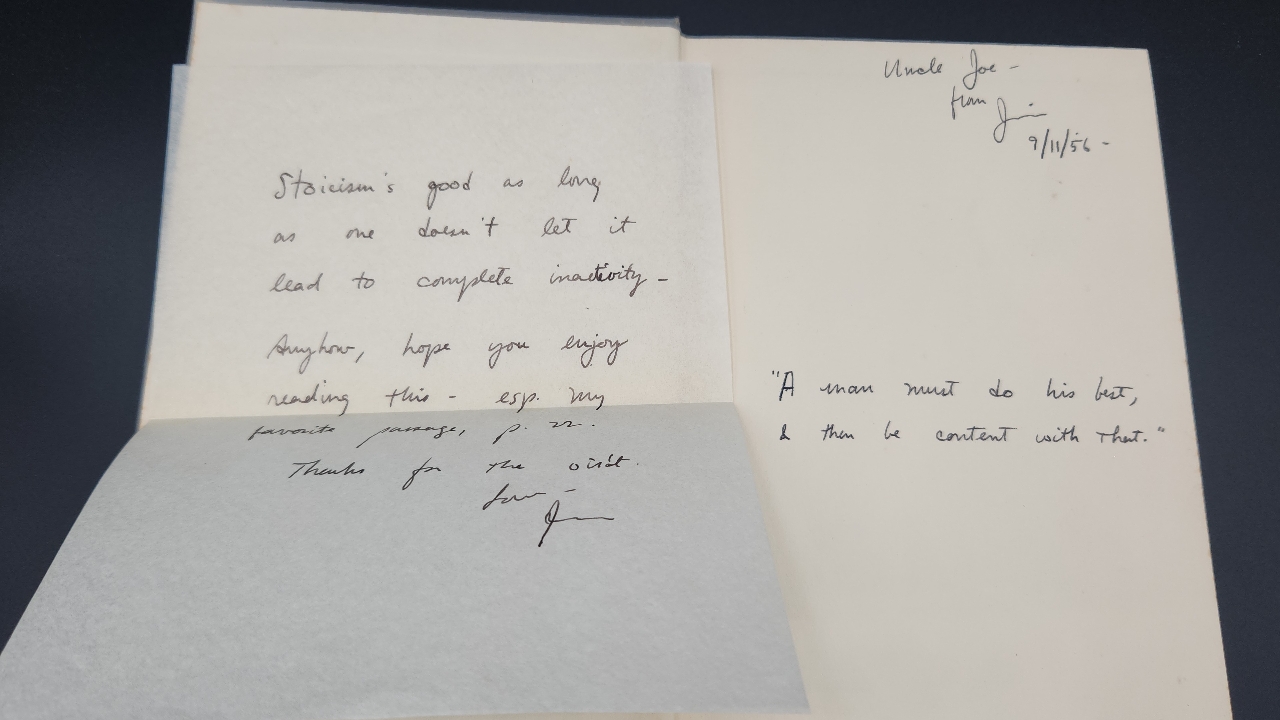 Stoicism's good as long
as one doesn't let it
lead to complete inactivity –
Anyhow, hope you enjoy
reading this – esp. my
favorite passage, p. 22.
Thanks for the visit.
Love –
Jim
Uncle Joe –
from Jim
9/11/56 –
"A man must do his best,
& then be content with that."